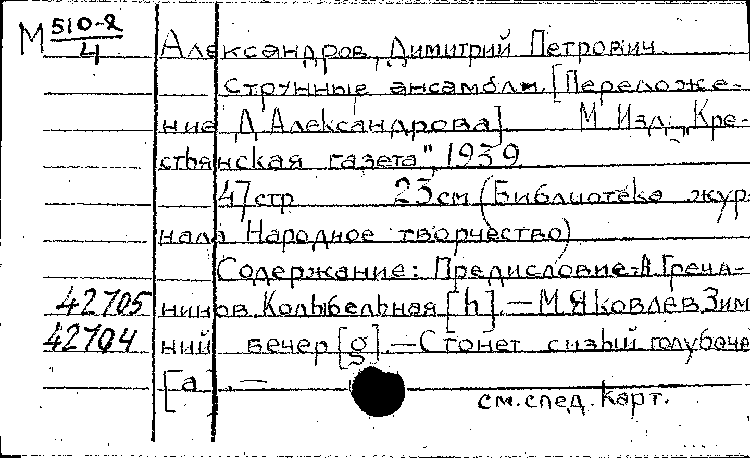 М 510-2
4
Александров, Димитрий Петрович
Струнные ансамбли. [Переложе-
ние Д Александрова]. М Изд. „Кре-
стьянская газета", 1939
47 стр 23 см (Библиотека жур
нала Народное творчество)
Содержание: Предисловие.-А Греча-
42705 нинов. Колыбельная [h]. — М Яковлев, Зим
42704 ний вечер [g]. — Стонет сизый голубоче
[a]. —
см. след. карт.